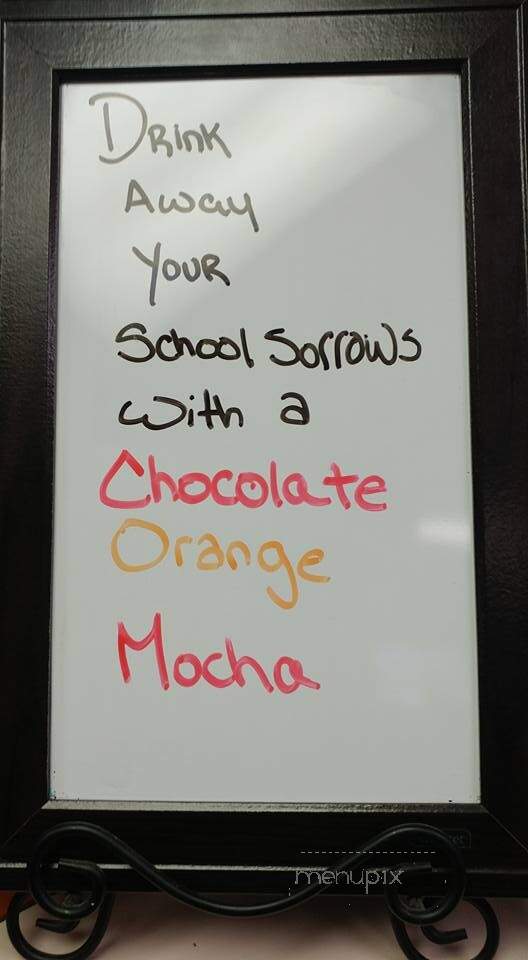 Drink
Away
Your
School Sorrows
with a
Chocolate
Orange
Mocha
menupix